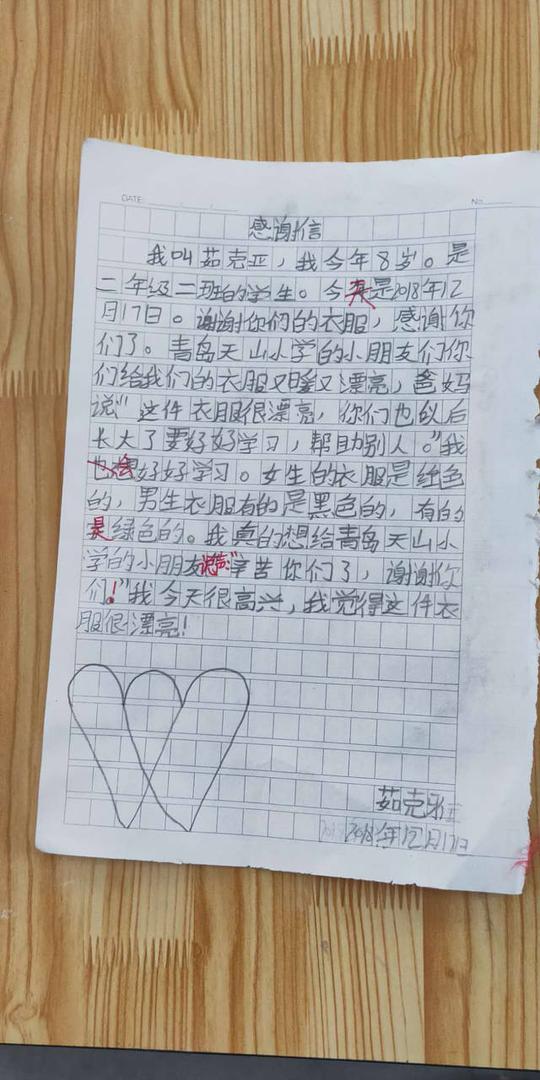 DATE:
No.
感谢信
我叫茹克亚，我今年8岁。是
二年级二班的学生。今天是2018年12
月17日。谢谢你们的衣服，感谢你
们了。青岛天山小学的小朋友们你
们给我们的衣服又暖又漂亮，爸妈
说“这件衣服很漂亮，你们也以后
长大了要好好学习，帮助别人。”我
也会好好学习。女生的衣服是红色
的，男生衣服有的是黑色的，有的
是绿色的。我真的想给青岛天山小
学的小朋友说声“辛苦你们了，谢谢你
们！”我今天很高兴，我觉得这件衣
服很漂亮！
茹克亚
2018年12月17日